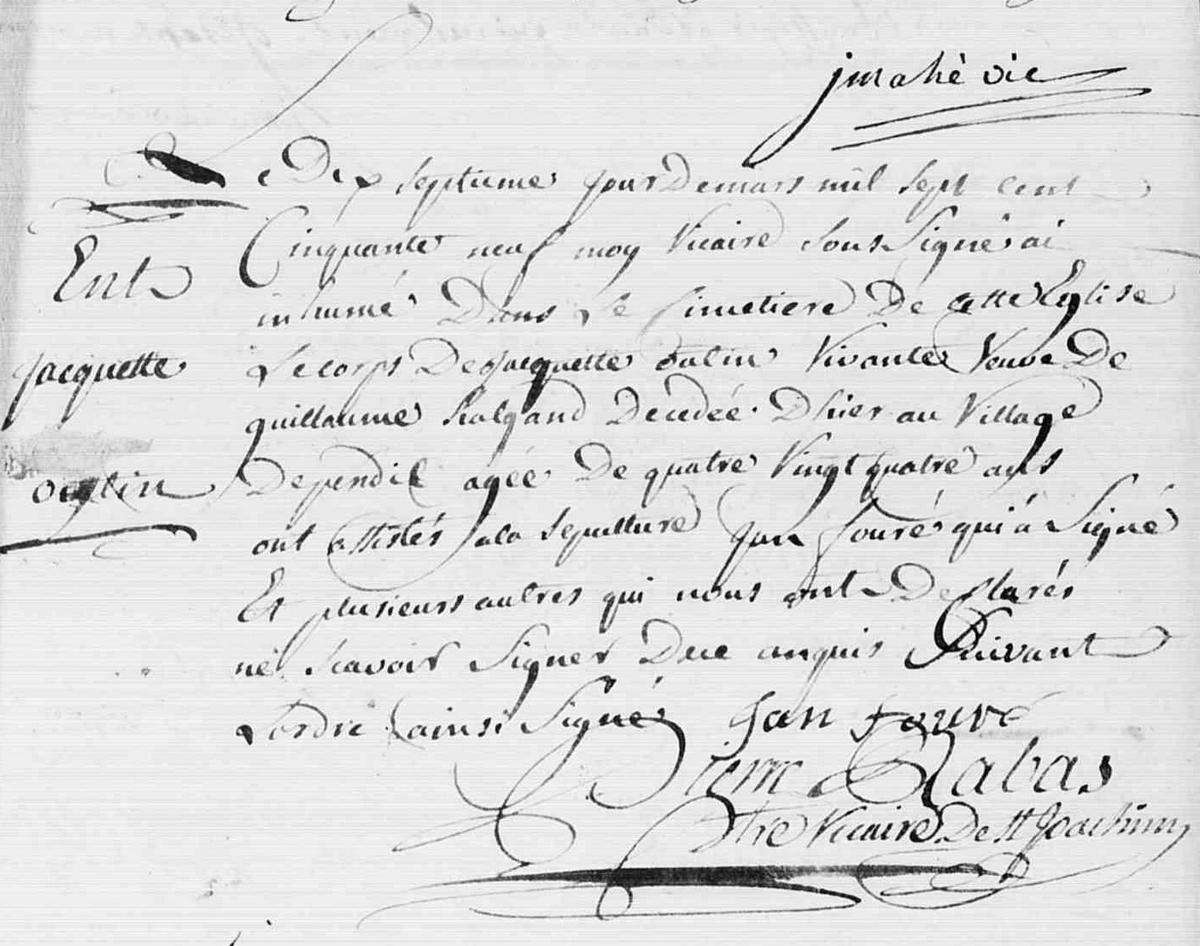 jmahé vic
Le Dix septieme jour Demars mil sept cent
Cinquante neuf moy Vicaire Sous Signé ai
Ent
inhumé Dans Le Cimetiere De Cette Eglise
jacquette
Le corps De jacquette Vivante Veuve De
guillaume halgand Decedée D'hier au Village
oalin
De pendil agée De quatre Vingt quatre ans
ont assistés a la sepulture jan fouré qui á Signé
Et plusieurs autres qui nous ont Declarés
ne Scavoir Signer Dece anquis Suivant
L'ordre ainsi Signé jan fouré
Pierre Rabas
ptre Vicaire De St Joachim